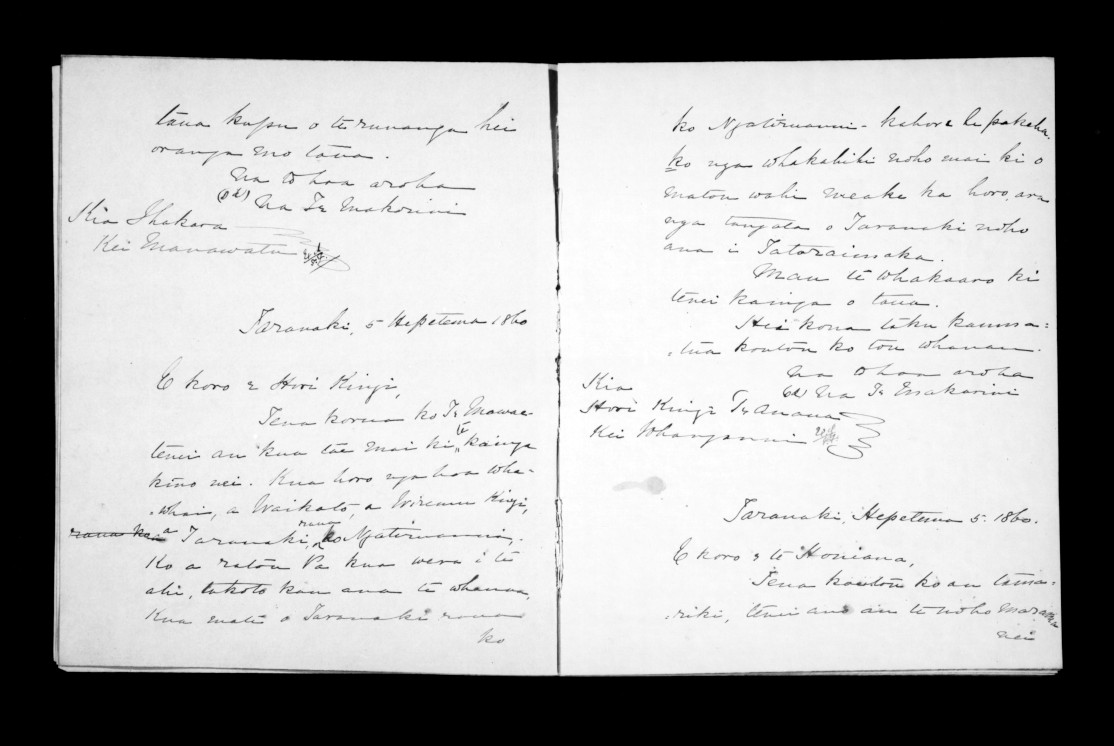 tana kupu o te runanga hei
oranga mo taua.
Na to hoa aroha
Na Te Makarini
Kia Ihakara
Kei Manawatu
Taranaki, 5 Hepetema 1860
E koro e Hori Kingi,
Tena korua ko Te Mawae-
tenei au kua tae mai ki te kainga
kino nei. Kua horo nga hoa wha-
whai, a Waikato, a Wiremu Kingi,
a Taranaki, raua ko Ngatiruanui.
Ko a ratou Pa kua wera i te
ahi, takoto kau ana te whenua,
Kua mate o Taranaki raua
ko
ko Ngatiruanui - kahore he pakeha.
ko nga whakahiki noho mai ki o
matou wahi weake ka horo, ara
nga tangata o Taranaki noho
ana i Tataraimaka.
Mau te whakaaro ki
tenei kainga o taua.
Hei kona taku kauma-
tua koutou ko tou whanau.
Na to hoa aroha
Na Te Makarini
Kia
Hori Kingi Te Anaua
Kei Whanganui
Taranaki, Hepetema 5. 1860.
E koro e te Honiana,
Tena koutou ko au tama-
riki, tenei ano au te noho marama
nei